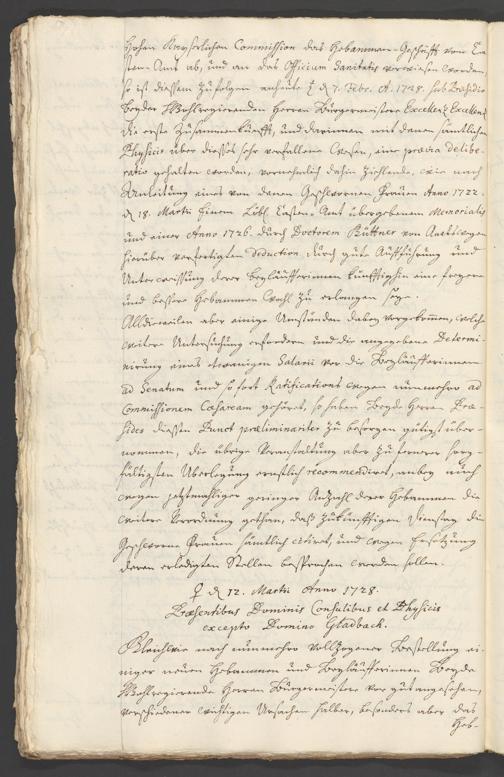 hohen Kayserlichen Commission das Hebammen-Geschäfft vom Ca-
sten-Amt ab, und an das Officium Sanitatis verwiesen worden,
so ist diesem zufolgen anheute ♄ d. 7. Febr. A. 1728. sub Præsidio
beyder Wohlregierenden Herren Bürgermeistere Excellenz Excellenz
die erste Zusammenkunfft, und darinnen mit denen sämtlichen
Physicis über dieses sehr verfallene Wesen, eine prævia delibe-
ratio gehalten worden, vornehmlich dahin ziehlende, wie nach
Anleitung eines von denen Geschwornen Frauen Anno 1722.
d. 18. Martii Einem Löbl. Casten-Amt übergebenen Memorialis
und einer Anno 1726. durch Doctorem Büttner von
hierüber verfertigten Deduction, durch gute Aufführung und
Unterweissung derer Beyläufferinnen künfftighin eine
und bessere Hebammen Wahl zu erlangen seye.
Alldieweilen aber einige Umständen dabey vorgekommen, welche
weitere Untersuchung erfordern und die angegebene Determi-
nirung eines etwanigen Salarii vor die Beyläufferinnen
ad Senatum und so fort Ratifications wegen nunmehro ad
Commissionem Cæsaream gehöret, so haben beyde Herren Præ-
sides diesen Punct præliminariter zu besorgen gütigst über-
nommen, die übrige Veranstaltung aber zu fernerer sorg-
fältigsten Uberlegung ernstlich recommendiret, anbey auch
wegen jetztmahliger geringer Anzahl derer Hebammen die
weitere Verordnung gethan, daß zukünfftigen Dienstag die
Geschworne Frauen sämtlich citiret, und wegen Ersetzung
deren erledigten Stellen besprochen werden sollen.
♀ d. 12. Martii Anno 1728.
Præsentibus Dominis Consulibus et Physicis
excepto Domino Gladbach.
Gleichwie nach nunmehro vollzogener Bestellung ei-
niger neuen Hebammen und Beyläufferinnen Beyde
Wohlregierende Herren Bürgermeistere vor gut angesehen,
verschiedener wichtigen Ursachen halber, besonders aber das
Heb-